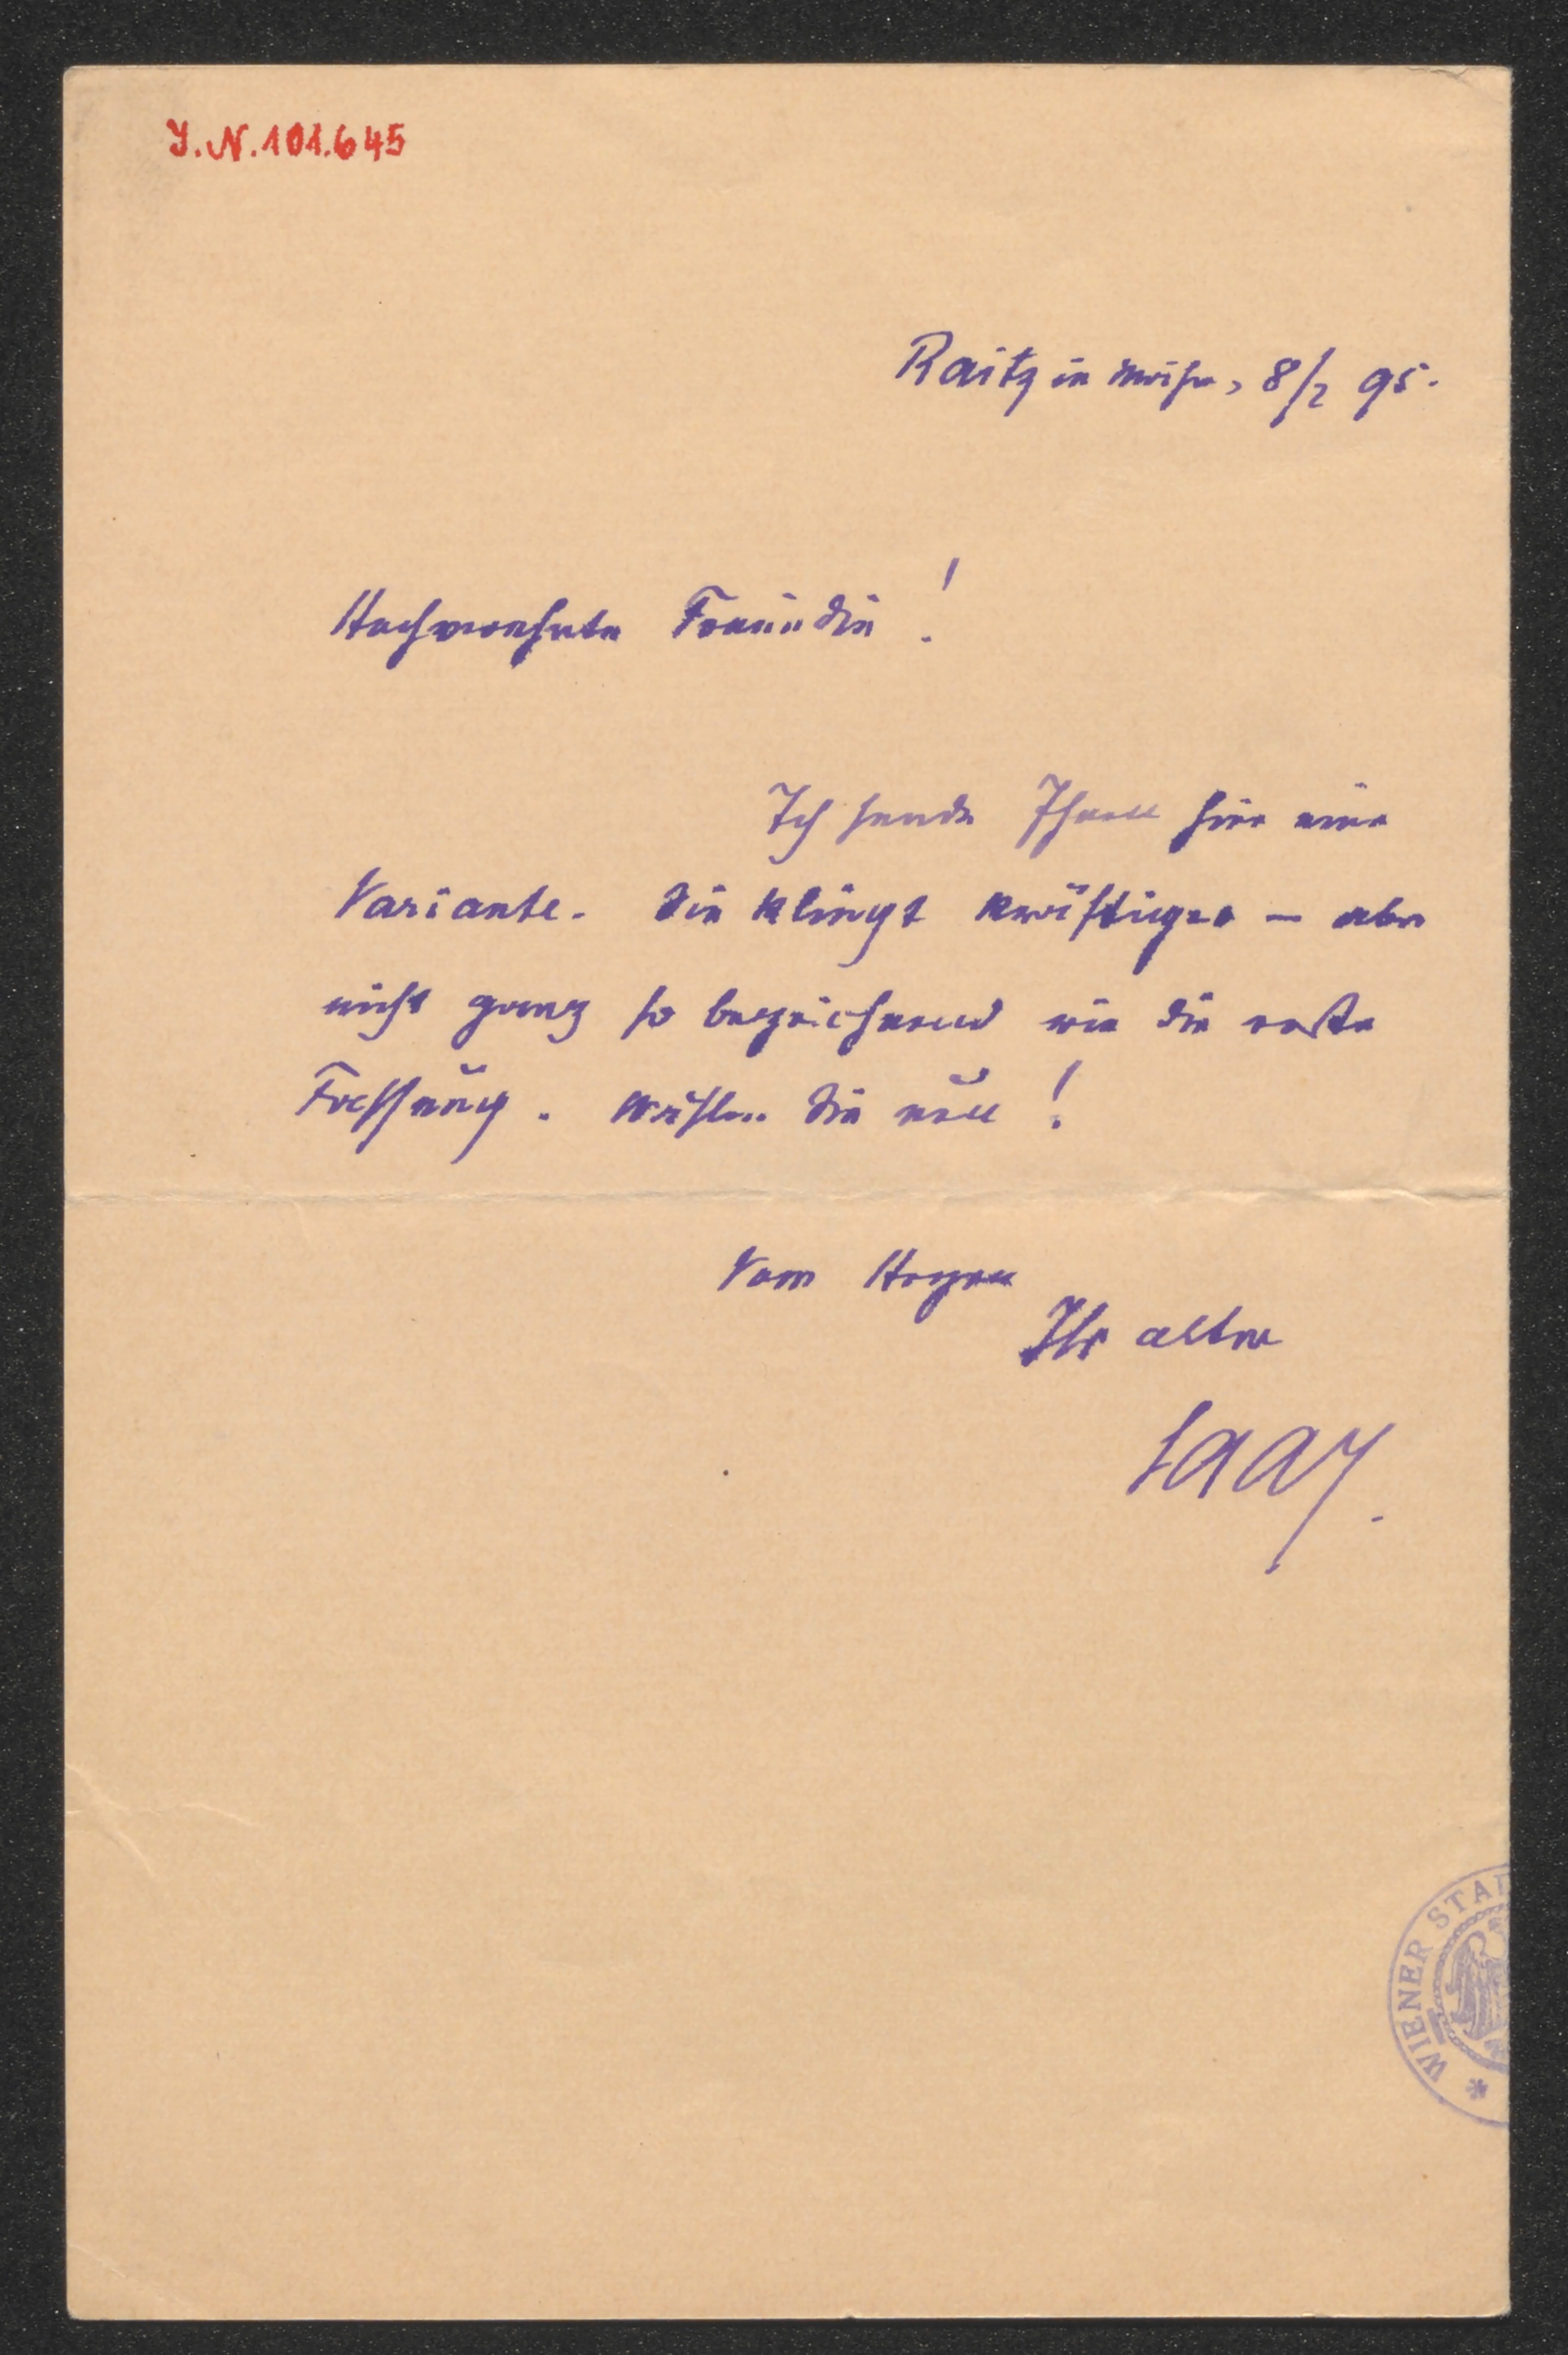 J.N. 101.645
Raitz in Mähr, 8/2 95.
Hochverehrte Freundin!
Ich sende Ihnen hier eine
Variante. Sie klingt kräftiger – aber
nicht ganz so bezeichnend wie die erste
Fassung. Wählen Sie nun!
Vom Herzen
Ihr alter
Saar.
WIENER STA